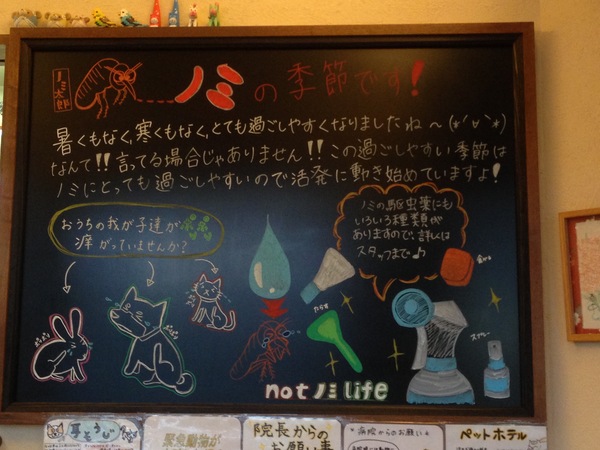 ノミ太郎
ノミの季節です!
暑くもなく、寒くもなく、とても過ごしやすくなりましたね〜(*'∀`*)
なんて!!言ってる場合じゃありません!!この過ごしやすい季節は
ノミにとっても過ごしやすいので活発に動き始めていますよ!
おうちの我が子達が
痒がっていませんか?
ノミの駆虫薬にも
いろいろ種類が
ありますので、詳しくは
スタッフまで♪
食べる
たらす
スプレー
not ノミ life
耳そうじ
緊急動物が
院長からの
お願い事
病院からのお願い
ペットホテル